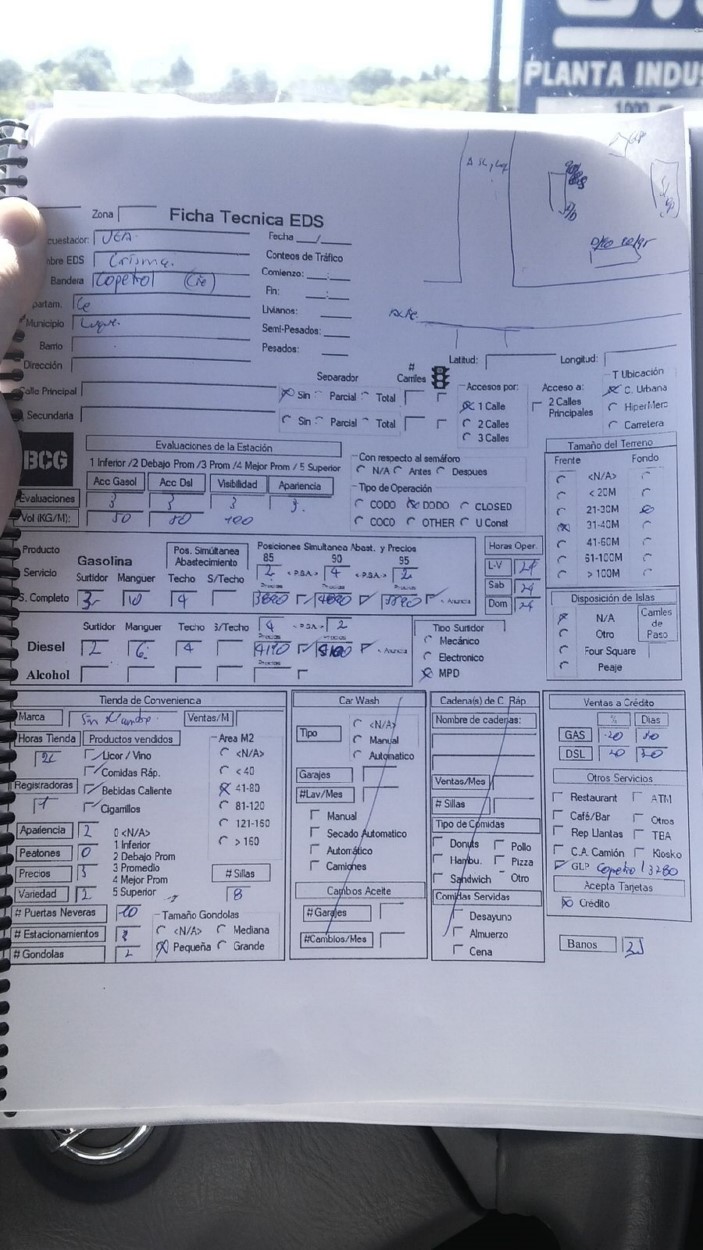 PLANTA INDUS
1000
Zona
Ficha Tecnica EDS
cuestador: JEA.
Fecha / /
mbre EDS Crisma.
Conteos de Tráfico
Bandera Copetrol (Cie)
Comienzo: :
Fin: :
partam. Ce
Livianos:
Municipio Luque.
Semi-Pesados:
Barrio
Pesados:
Dirección
Latitud: Longitud:
Separador # Carriles
Calle Principal Sin Parcial Total
Secundaria Sin Parcial Total
Accesos por:
1 Calle
2 Calles
3 Calles
Acceso a:
2 Calles Principales
T Ubicación
C. Urbana
HiperMerc
Carretera
BCG
Evaluaciones de la Estación
1 Inferior /2 Debajo Prom /3 Prom /4 Mejor Prom / 5 Superior
Acc Gasol Acc Dsl Visibilidad Apariencia
Evaluaciones 3 3 3 3.
Vol (KG/M): 50 50 100
Con respecto al semáforo
N/A Antes Despues
Tipo de Operación
CODO DODO CLOSED
COCO OTHER U Const
Tamaño del Terreno
Frente Fondo
<N/A>
< 20M
21-30M
31-40M
41-60M
61-100M
> 100M
Producto
Servicio
S. Completo
Gasolina
Pos. Simúltánea Abastecimiento
Posiciones Simultanea Abast. y Precios
85 90 95
2 4 2
Surtidor Manguer Techo S/Techo
3 10 4
Horas Oper.
L-V 24
Sab 24
Dom 24
Surtidor Manguer Techo S/Techo 4 2
Diesel 2 6 4 4190
Alcohol
Tipo Surtidor
Mecánico
Electronico
MPD
Disposición de Islas
N/A
Otro
Four Square
Peaje
Carriles de Paso
Tienda de Convenienca
Marca Sin Nombre. Ventas/M
Horas Tienda 24
Productos vendidos
Licor / Vino
Comidas Ráp.
Bebidas Caliente
Cigarrillos
Registradoras 1
Area M2
<N/A>
< 40
41-80
81-120
121-160
> 160
Apariencia 2
Peatones 0
Precios 3
Variedad 2
0 <N/A>
1 Inferior
2 Debajo Prom
3 Promedio
4 Mejor Prom
5 Superior
# Sillas 8
# Puertas Neveras 10
# Estacionamientos
# Gondolas 2
Tamaño Gondolas
<N/A> Mediana
Pequeña Grande
Car Wash
Tipo
<N/A>
Manual
Automatico
Garajes
#Lav/Mes
Manual
Secado Automatico
Automático
Camiones
Cambos Aceite
#Garajes
#Cambios/Mes
Cadena(s) de C. Ráp
Nombre de cadenas:
Ventas/Mes
# Sillas
Tipo de Comidas
Donuts Pollo
Hambu. Pizza
Sandwich Otro
Comidas Servidas
Desayuno
Almuerzo
Cena
Ventas a Crédito
% Dias
GAS 20 30
DSL 20 30
Otros Servicios
Restaurant ATM
Café/Bar Otros
Rep Llantas TBA
C.A. Camión Kiosko
GLP Copetrol 3780
Acepta Tarjetas
Crédito
Banos